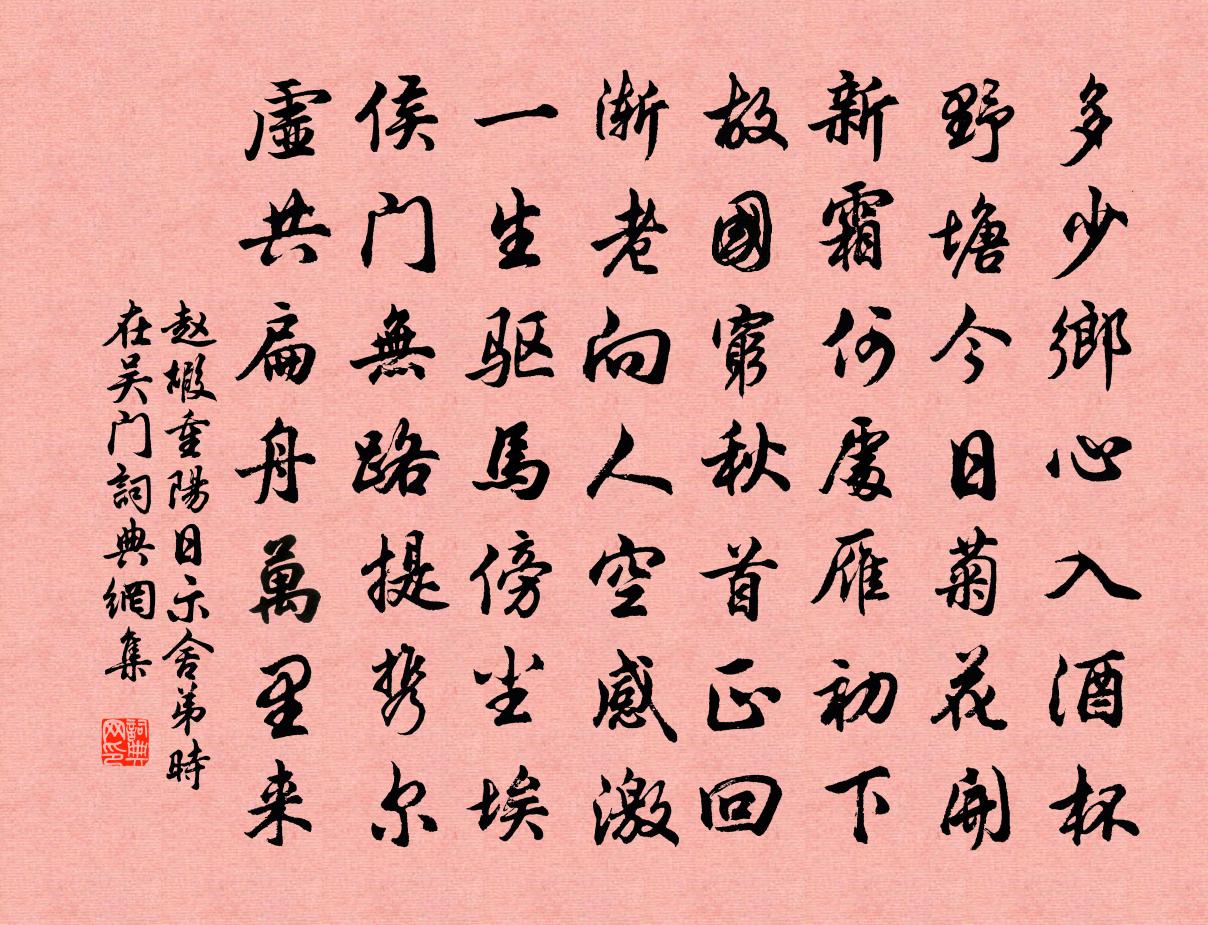 多少鄉心入酒杯
野塘今日菊花開
新霜何處雁初下
故國窮秋首正回
漸老向人空感激
一生驱馬傍尘埃
侯门無路提携尔
虛共扁舟萬里来
赵嘏重陽日示舍弟時
在吴门詞典網集
詞典
网印